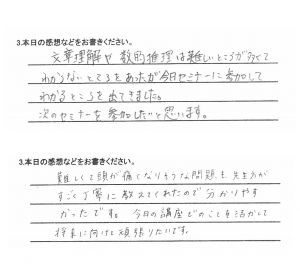 3.本日の感想などをお書きください。
文章理解や数的推理は難しいところが多くて
わからないところをあったが今日セミナーに参加して
わかるところを出てきました。
次のセミナーを参加したいと思います。
3.本日の感想などをお書きください。
難しくて頭が痛くなりそうな問題も先生方が
すごく丁寧に教えてくれたので分かりやす
かったです。今日の講座でのことを活かして
将来に向けて頑張りたいです。